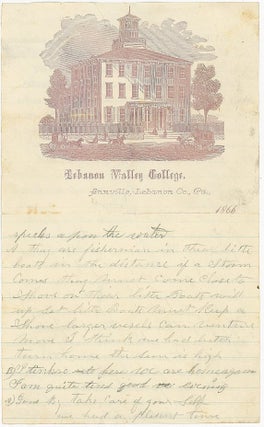 Lebanon Valley College.
Annville, Lebanon Co., Pa.,
1866
specks upon the water
they are fishermen in their little
boats in the distance if a storm
comes they must come close to
shore or their little boats will
up set little boats must keep
shore larger vessels can venture
more I think we had better
turn home the sun is high
here we are home again
I am quite tired good evening
Good by take care of your self
we had a plesent time